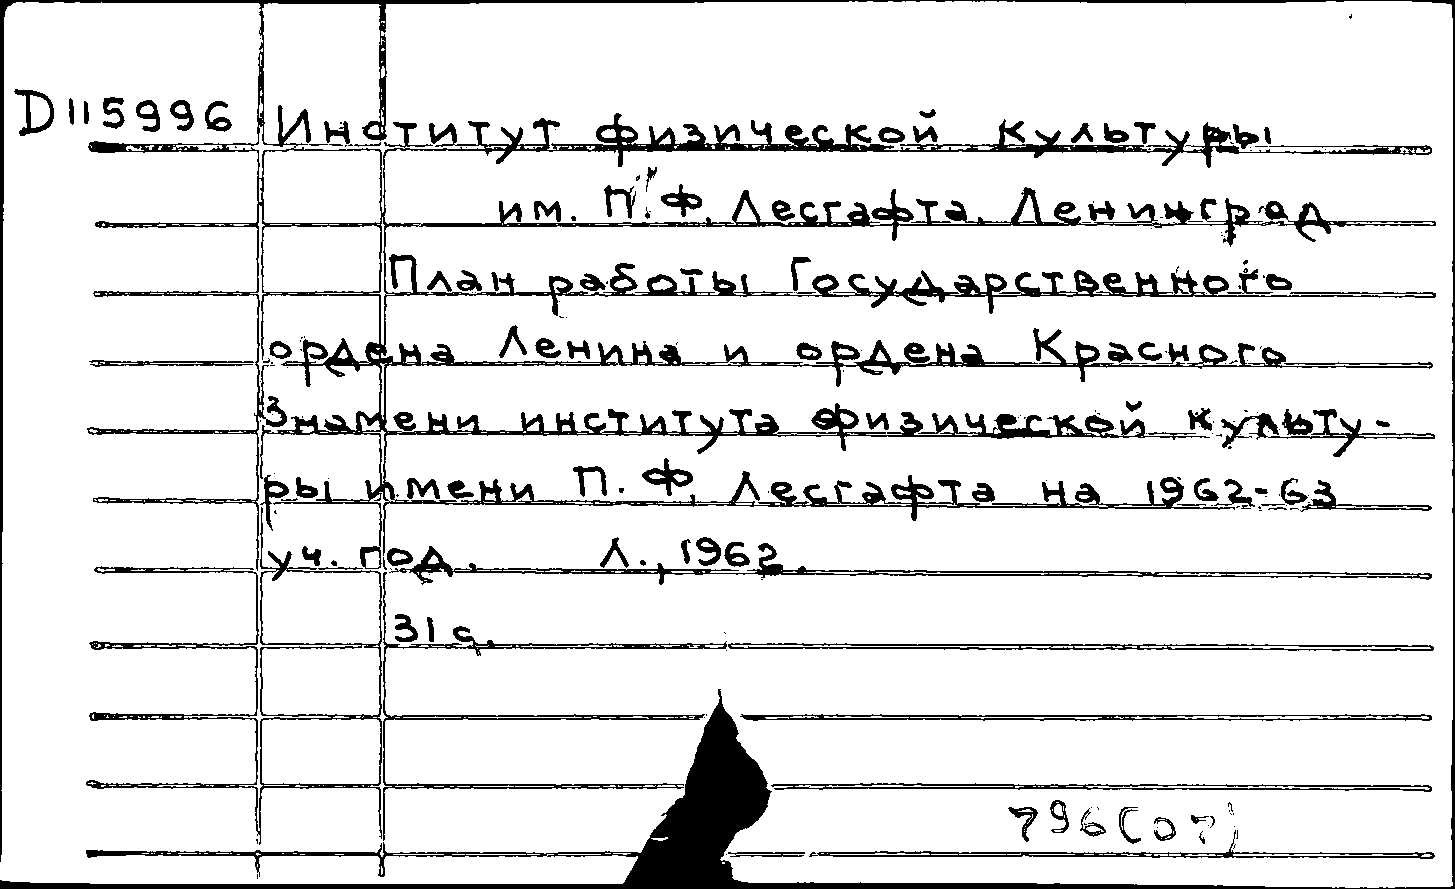 D115996 Институт физической культуры
им. П.Ф. Лесгафта. Ленинград.
План работы Государственного
ордена Ленина и ордена Красного
Знамени института физической культу-
ры имени П.Ф. Лесгафта на 1962-63
уч. год. Л., 1962.
31 с.
796(07)